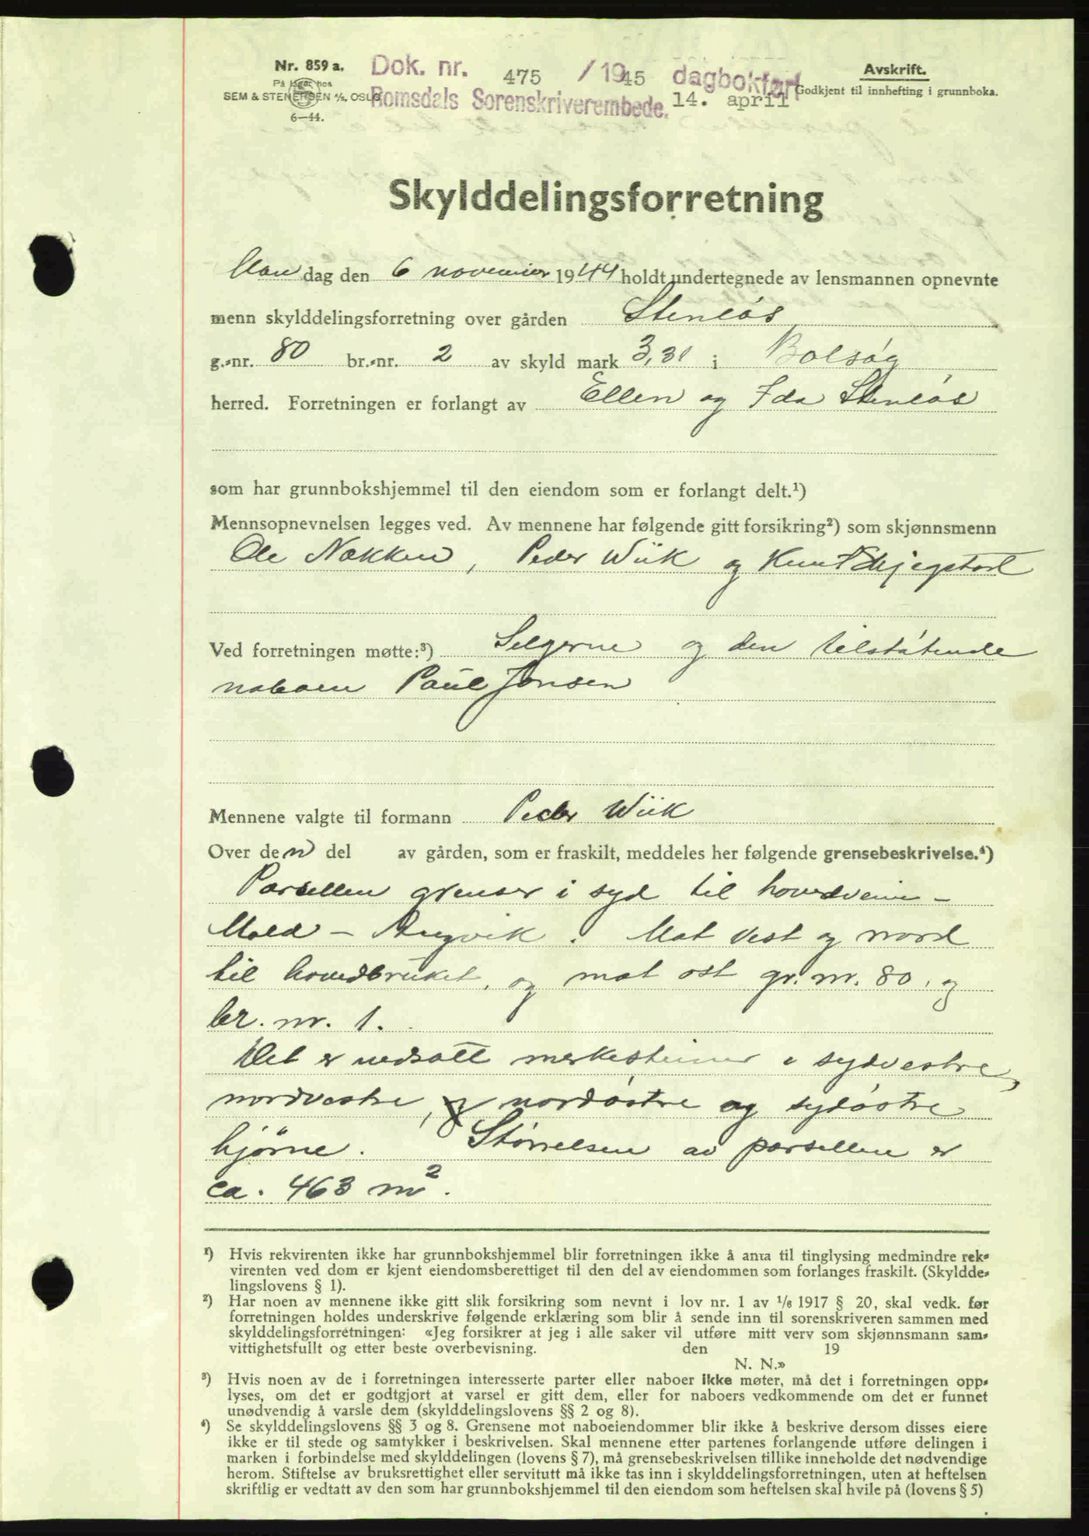 Nr. 859 a.
På lager hos
SEM & STENERSEN A/S, OSLO
6—44.
Dok. nr. 475 / 1945 dagbokført
Romsdals Sorenskriverembede. 14. april
Avskrift.
Godkjent til innhefting i grunnboka.
Skylddelingsforretning
Mandag den 6 november 1944 holdt undertegnede av lensmannen opnevnte
menn skylddelingsforretning over gården Stenløs
g.-nr. 80 br.-nr. 2 av skyld mark 3,31 i Bolsøy
herred. Forretningen er forlangt av Ellen og Ida Stenløs
som har grunnbokshjemmel til den eiendom som er forlangt delt.¹)
Mennsopnevnelsen legges ved. Av mennene har følgende gitt forsikring²) som skjønnsmenn
Ole Nakken, Peder Wiik og Knut
Ved forretningen møtte:³) Selgerne og den tilstøtende
naboen Paul Jonsen
Mennene valgte til formann Peder Wiik
Over den del av gården, som er fraskilt, meddeles her følgende grensebeskrivelse.⁴)
Parsellen grenser i syd til hovedveien –
Molde – Angvik. Mot vest og nord
til hovedbruket, og mot ost gr. nr. 80, og
br. nr. 1.
Det er nedsatt merkesteiner i sydvestre,
nordvestre, nordøstre og sydøstre
hjørne. Størrelsen av parsellen er
ca. 463 m².
¹) Hvis rekvirenten ikke har grunnbokshjemmel blir forretningen ikke å anta til tinglysing medmindre rek-
virenten ved dom er kjent eiendomsberettiget til den del av eiendommen som forlanges fraskilt. (Skyldde-
lingslovens § 1).
²) Har noen av mennene ikke gitt slik forsikring som nevnt i lov nr. 1 av 1/6 1917 § 20, skal vedk. før
forretningen holdes underskrive følgende erklæring som blir å sende inn til sorenskriveren sammen med
skylddelingsforretningen: «Jeg forsikrer at jeg i alle saker vil utføre mitt verv som skjønnsmann sam-
vittighetsfullt og etter beste overbevisning. den 19
N. N.»
³) Hvis noen av de i forretningen interesserte parter eller naboer ikke møter, må det i forretningen opp-
lyses, om det er godtgjort at varsel er gitt dem, eller for naboers vedkommende om det er funnet
unødvendig å varsle dem (skylddelingslovens §§ 2 og 8).
⁴) Se skylddelingslovens §§ 3 og 8. Grensene mot naboeiendommer blir ikke å beskrive dersom disses eiere
ikke er til stede og samtykker i beskrivelsen. Skal mennene etter partenes forlangende utføre delingen i
marken i forbindelse med skylddelingen (lovens § 7), må grensebeskrivelsen tillike inneholde det nødvendige
herom. Stiftelse av bruksrettighet eller servitutt må ikke tas inn i skylddelingsforretningen, uten at heftelsen
skriftlig er vedtatt av den som har grunnbokshjemmel til den eiendom som heftelsen skal hvile på (lovens § 5)